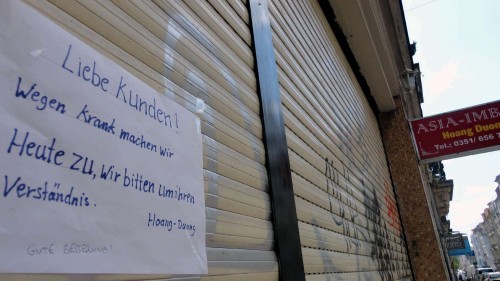 Liebe Kunden!
Wegen Krank machen wir
Heute zu, Wir bitten um ihren
Verständnis.
Hoang-Duong
GUTE BESSERUNG!
ASIA-IMB
Hoang Duon
Tel.: 0351/ 656